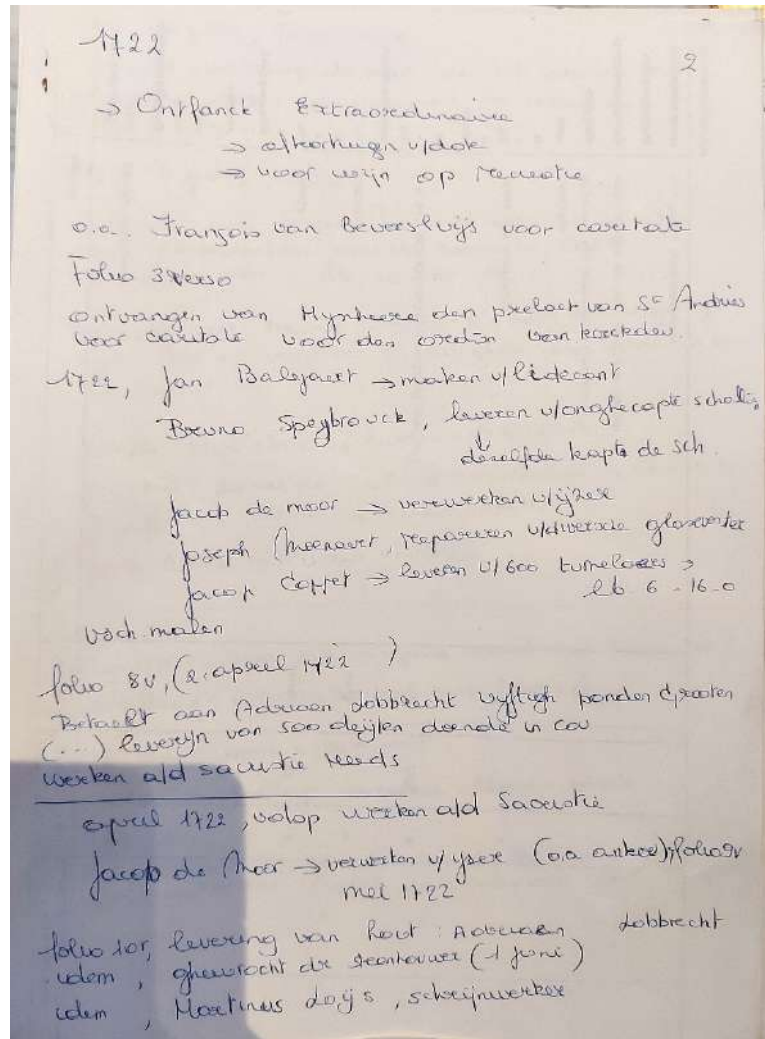 1722
2
→ Ontfanck Extraordinaire
→ afkortingen v/dok
→ voor wijn op recreatie
o.a. François van Beversluijs voor caritate
Folio 3 verso
ontvangen van Mynheere den prelaet van St Andries
voor caritate voor den oredin van
1722, Jan Balgaert → maken v/ lidecant
Bruno Speybrouck, leveren v/onghecapte
↓
dezelfde kapte de sch.
Jacob de moor → verwerken v/ijzer
Joseph repareren v/diversche
Jacop Coppet → leveren v/600
lb 6-16-0
vsch. malen
folio 8v, (2. april 1722)
Betaelt aan Adriaan dobbrecht vyftigh ponden grooten
(...) leveryn van 500 doende in
werken a/d sacristie reeds
april 1722, volop werken a/d Sacristie
Jacop de Moor → verwerken v/ ysere (o.a ankers), folio 9v
mei 1722
folio 10r, levering van hout: Adriaen dobbrecht
idem, ghewrocht de steenhouwer (1 juni)
idem, Martinus Loÿs, schrijnwerker